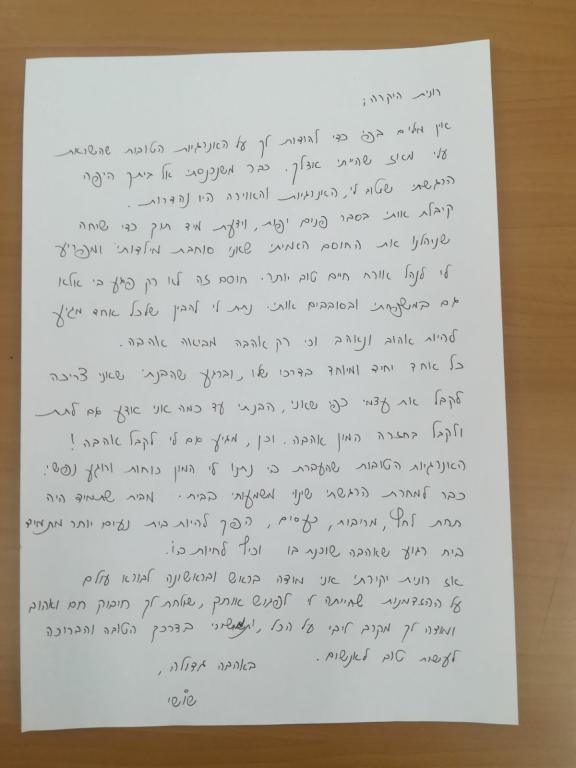 רונית היקרה;
אין מילים בפי כדי להודות לך על האנרגיות הטובות שהשראת
עלי מאז שהייתי אצלך. כבר משנכנסתי אל ביתך היפה
הרגשתי שטוב לי, האנרגיות והאווירה היו נהדרות.
קיבלת אותי בסבר פנים יפות, וידעת מיד תוך כדי שיחה
שניהלנו את החוסם האמיתי שאני סוחבת מילדותי ומפריע
לי לנהל אורח חיים טוב יותר. חוסם זה לא רק פגע בי אלא
גם במשפחתי ובסובבים אותי. נתת לי להבין שלכל אחד מגיע
להיות אהוב ונאהב וכי רק אהבה מביאה אהבה.
כל אחד יחיד ומיוחד בדרכו שלו, וברגע שהבנתי שאני צריכה
לקבל את עצמי כפי שאני, הבנתי עד כמה אני אדע גם לתת
ולקבל בחזרה המון אהבה. וכן, מגיע גם לי לקבל אהבה!
האנרגיות הטובות שהעברת בי נתנו לי המון כוחות ורוגע נפשי.
כבר למחרת הרגשתי שינוי משמעותי בבית. מבית שתמיד היה
תחת לחץ, מריבות, כעסים, הפך להיות בית נעים יותר מתמיד
בית רגוע שאהבה שוכנת בו וכיף לחיות בו.
אז רונית יקירתי אני מודה בראש ובראשונה לבורא עולם
על ההזדמנות שהייתה לי לפגוש אותך, שולחת לך חיבוק חם ואהוב
ומודה לך מקרב ליבי על הכל, ותמשיכי בדרכך הטובה והברוכה
לעשות טוב לאנשים.
באהבה גדולה,
שושי